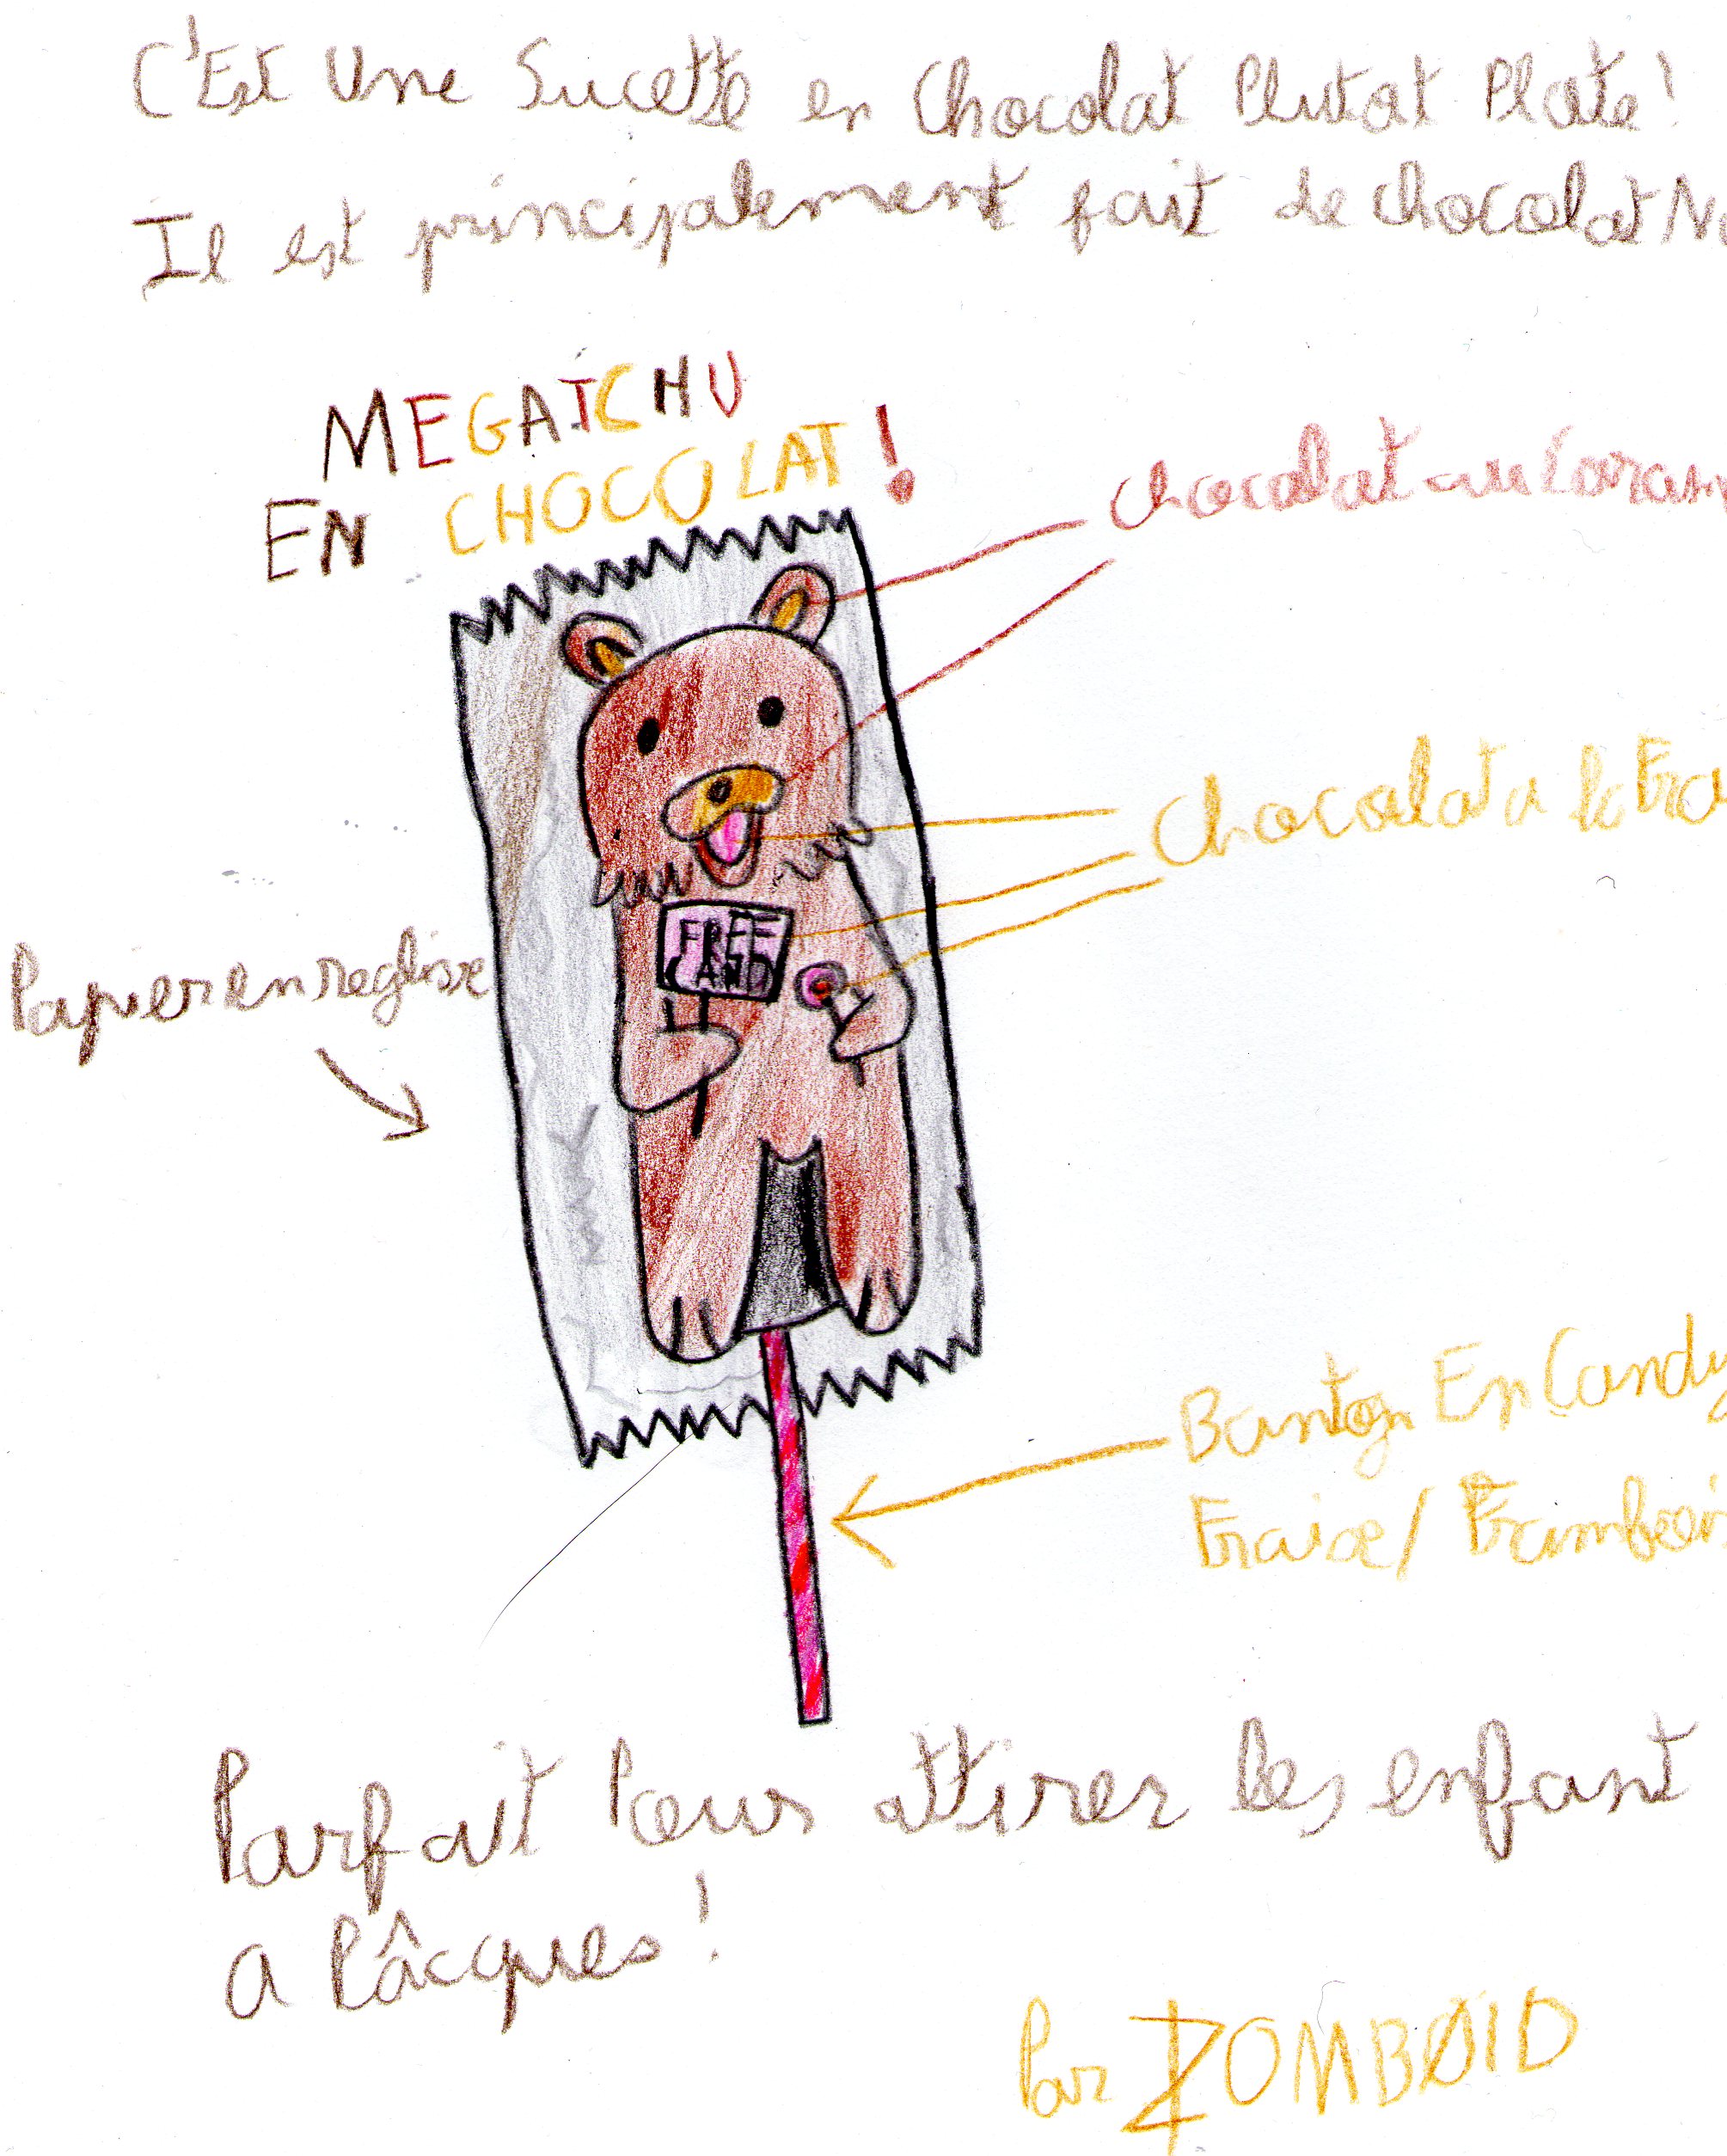 C'Est Une Sucette en Chocolat Plutot Plate!
Il est principalement fait de chocolat
MEGATCHU
EN CHOCOLAT!
Chocolat au
Chocolat a la
Papier en reglisse
FREE
CAND
Baston En Candy
Fraise/
Parfait Pour attirer les enfant
a Pâcques!
Par ZOMBØID